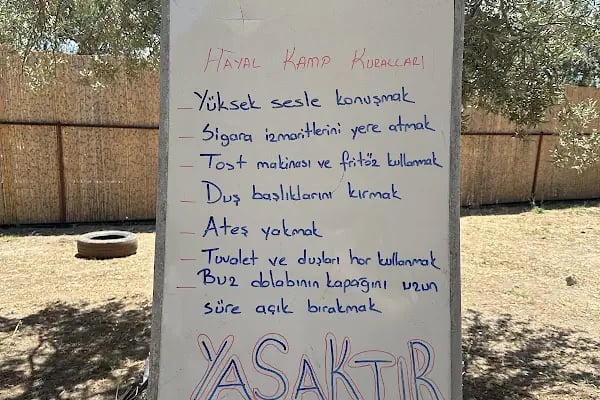 HAYAL KAMP KURALLARI
_ Yüksek sesle konuşmak
_ Sigara izmaritlerini yere atmak
_ Tost makinası ve fritöz kullanmak
_ Duş başlıklarını kırmak
_ Ateş yakmak
_ Tuvalet ve duşları hor kullanmak
_ Buz dolabının kapağını uzun
süre açık bırakmak
YASAKTIR